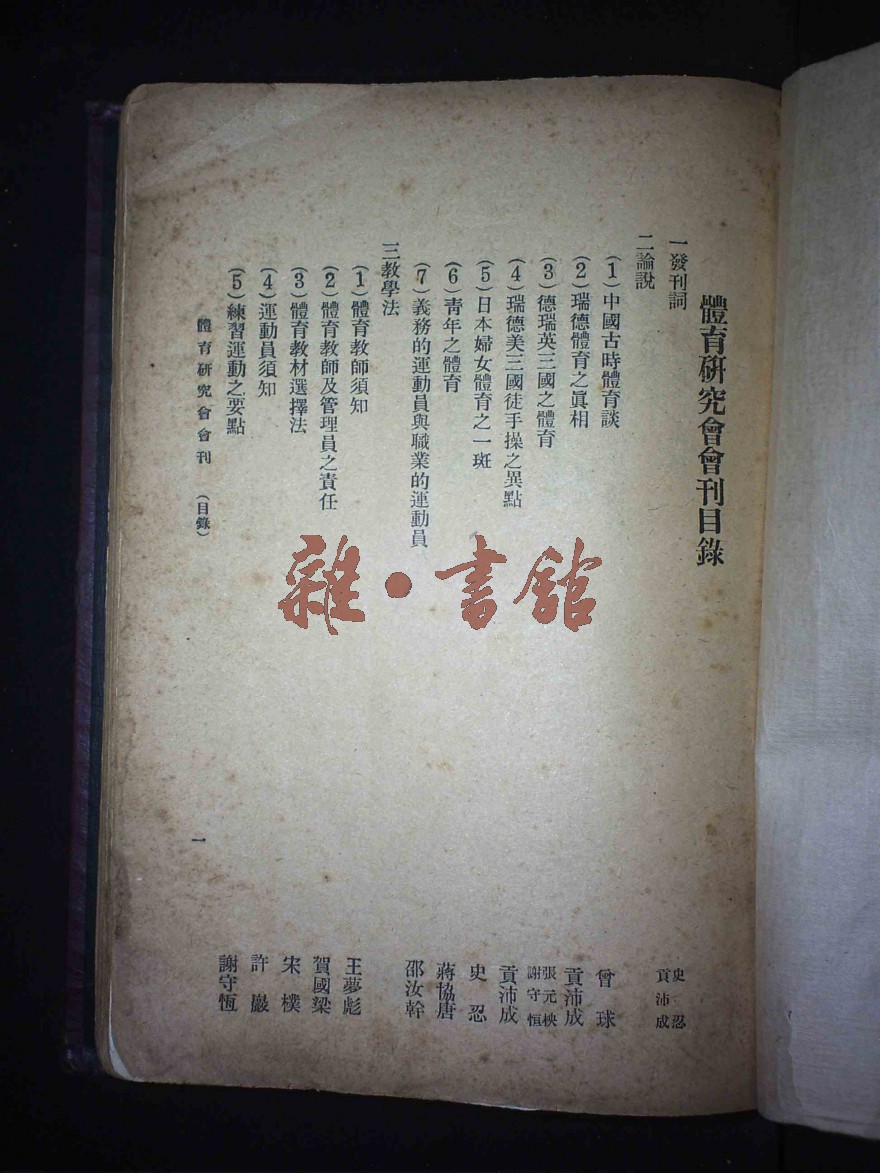 體育研究會會刊目錄
一發刊詞 史忍 貢沛成
二論說
(1)中國古時體育談 曾球
(2)瑞德體育之眞相 貢沛成
(3)德瑞英三國之體育 張元 謝守恒
(4)瑞德美三國徒手操之異點 貢沛成
(5)日本婦女體育之一斑 史忍
(6)靑年之體育 蔣協唐
(7)義務的運動員與職業的運動員 邵汝幹
三教學法
(1)體育教師須知 王夢彪
(2)體育教師及管理員之責任 賀國梁
(3)體育教材選擇法 宋樸
(4)運動員須知 許巖
(5)練習運動之要點 謝守恆
體育研究會會刊 (目錄)
一
雜·書館